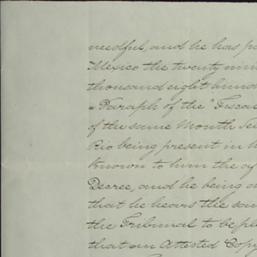 needful, and he has
Mexico the twenty nin
thousand eight hund
a Paraph of the "Fisca
of the same Month Se
Rio being present in
known to him the a
Decree, and he being
that he hears the sam
the Tribunal to be pl
that an Attested Copy